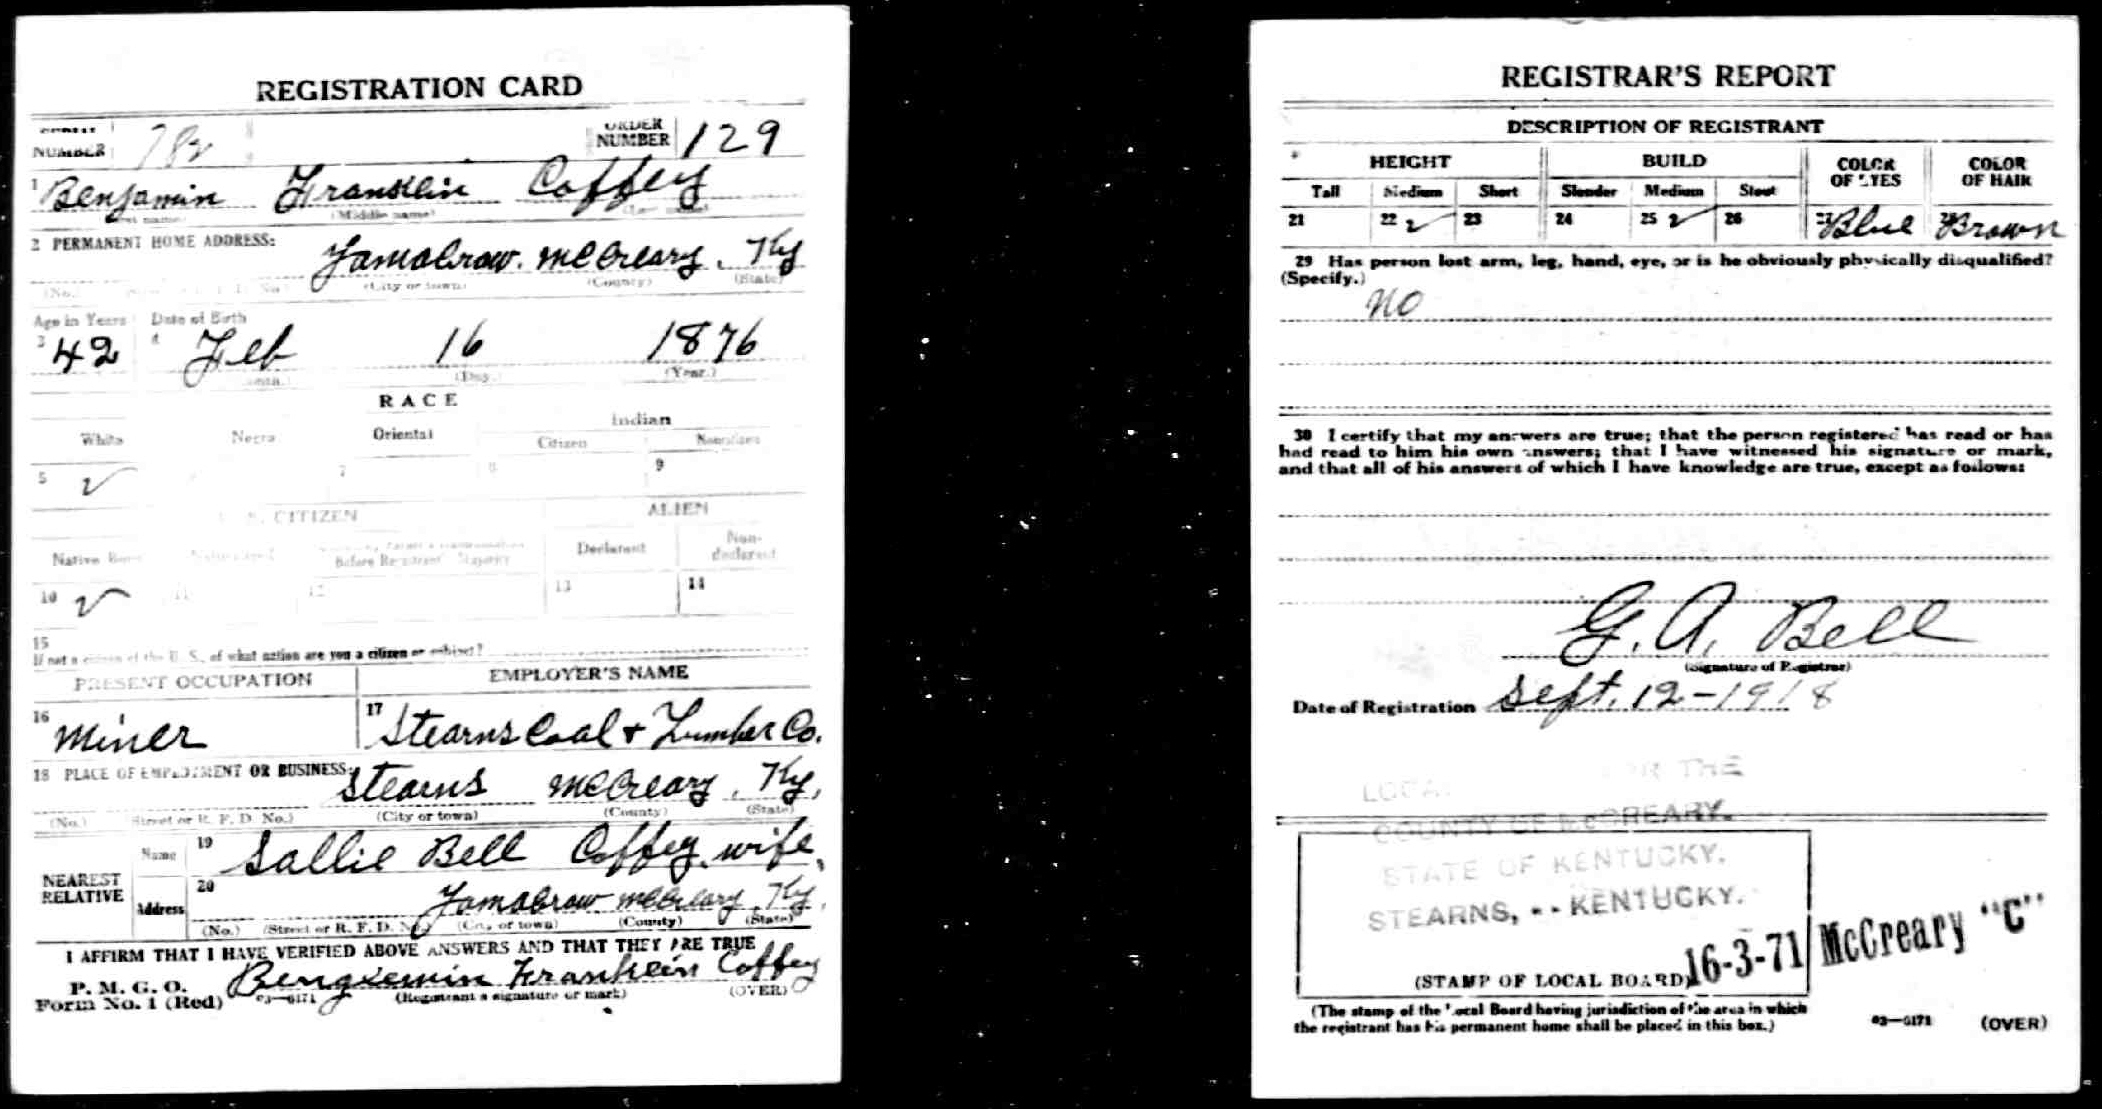 REGISTRATION CARD
SERIAL NUMBER 782 ORDER NUMBER 129
1 Benjamin Franklin Coffey
(Middle name)
2 PERMANENT HOME ADDRESS:
Yamacraw. McCreary. Ky
(No.) (City or town) (County) (State)
Age in Years Date of Birth
3 42 4 Feb 16 1876
(Day.) (Year.)
RACE
White Negro Oriental Indian
Citizen Noncitizen
5 ✓ 7 8 9
CITIZEN ALIEN
Native Born Declarant Non-declarant
10 ✓ 11 12 13 14
15
If not a citizen of the U. S., of what nation are you a citizen or subject?
PRESENT OCCUPATION EMPLOYER'S NAME
16 Miner 17 Stearns Coal + Lumber Co.
18 PLACE OF EMPLOYMENT OR BUSINESS:
Stearns McCreary. Ky,
(No.) (Street or R. F. D. No.) (City or town) (County) (State)
NEAREST RELATIVE
Name 19 Sallie Bell Coffey, wife,
Address 20 Yamacraw McCreary, Ky,
(No.) (Street or R. F. D. No.) (City or town) (County) (State)
I AFFIRM THAT I HAVE VERIFIED ABOVE ANSWERS AND THAT THEY ARE TRUE
P. M. G. O.
Form No. 1 (Red) 03—6171 Franklin Coffey
(Registrant's signature or mark) (OVER)
REGISTRAR'S REPORT
DESCRIPTION OF REGISTRANT
HEIGHT BUILD COLOR OF EYES COLOR OF HAIR
Tall Medium Short Slender Medium Stout
21 22 ✓ 23 24 25 ✓ 26 27 Blue 28 Brown
29 Has person lost arm, leg, hand, eye, or is he obviously physically disqualified?
(Specify.)
no
30 I certify that my answers are true; that the person registered has read or has
had read to him his own answers; that I have witnessed his signature or mark,
and that all of his answers of which I have knowledge are true, except as follows:
G. A. Bell
(Signature of Registrar)
Date of Registration Sept. 12-1918
LOCAL FOR THE
COUNTY OF McCREARY.
STATE OF KENTUCKY.
STEARNS, - - KENTUCKY.
16-3-71 McCreary "C"
(STAMP OF LOCAL BOARD)
(The stamp of the Local Board having jurisdiction of the area in which
the registrant has his permanent home shall be placed in this box.)
03—6171 (OVER)